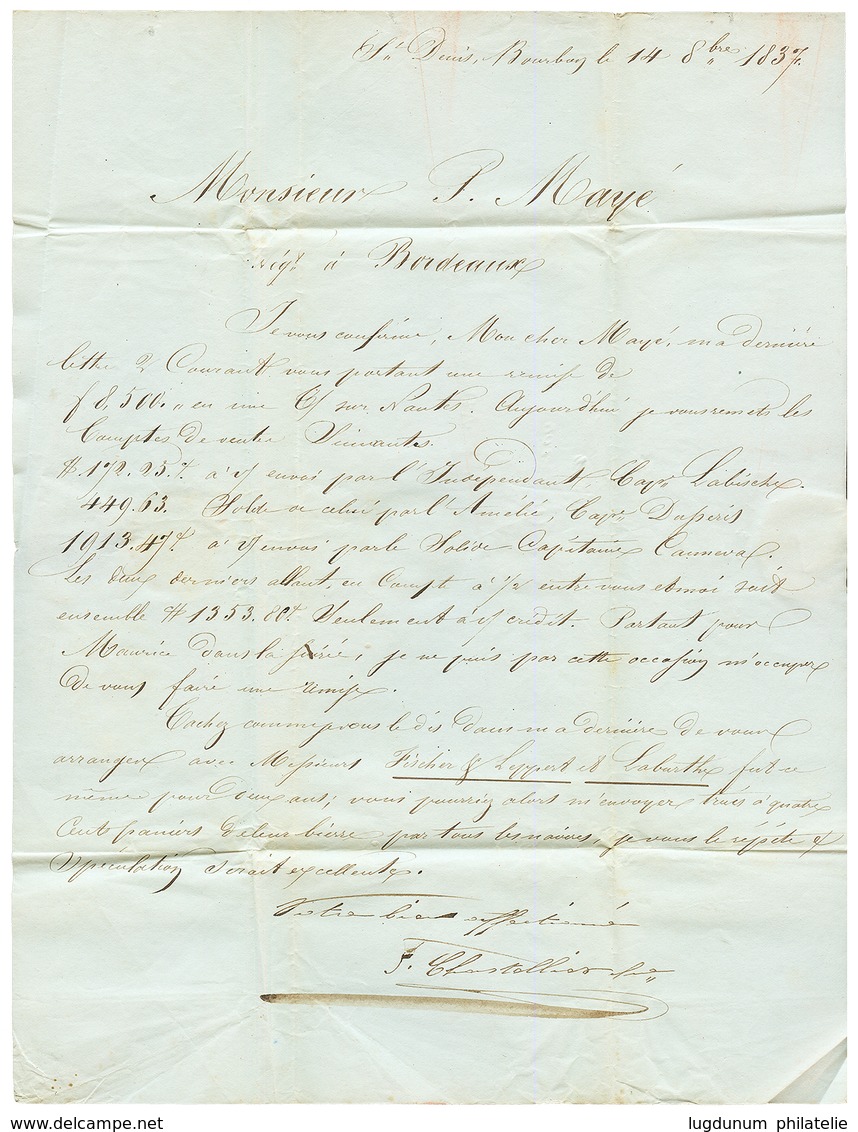 St Denis, Bourbon le 14 8bre 1837.
Monsieur P. Mayé
négt à Bordeaux
Je vous confirme, Mon cher Mayé, ma dernière
lettre 2 Courant vous portant une remise de
f 8,500. „ en une sur Nantes. Aujourd'hui je vous remets les
Comptes de vente Suivantes.
172.25. à envoi par l'Indépendant, Capne Labische.
449.63. Solde de celui par l'Amélie, Capne Duperis
1913.47 à envoi par le Solide Capitaine Canneval.
Les deux derniers allant en Compte à 1/2 entre vous et moi soit
ensemble 1353.80 Seulement à crédit. Partant pour
Maurice dans la soirée, je ne puis par cette occasion m'occuper
de vous faire une remise.
Tachez comme je vous le dis dans ma dernière de vous
arranger avec Messieurs Fischer & Leppert et Laburthe fut ce
même pour deux ans; vous pourriez alors m'envoyer trois à quatre
Cents paniers de leur bierre par tous les navires, je vous le répète
Spéculation serait excellente.
Votre bien affectionné
F. Chatellier
lugdunum philatelie